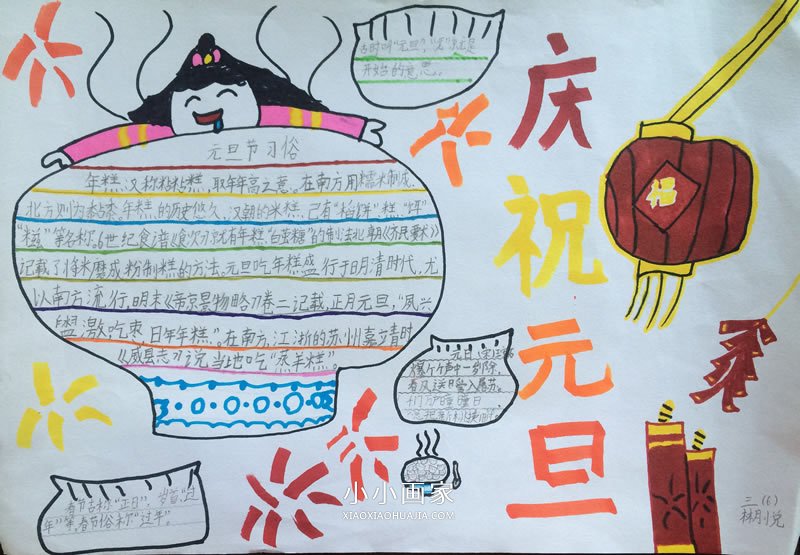 古时叫“元旦”，“元”就是
开始的意思。
庆
祝
元
旦
福
元旦节习俗
年糕，又称粘粘糕，取年年高之意。在南方用糯米制成，
北方则为黍。年糕的历史悠久，汉朝的米糕，已有“稻饼”“糕”“饵”
“糍”等名称。6世纪食谱《食次》就有年糕“白茧糖”的制法北朝《齐民要术》
记载了将米磨成粉制糕的方法。元旦吃年糕盛行于明清时代，尤
以南方流行，明末《帝京景物略》卷二记载，正月元旦，“夙兴
盥漱吃枣 日年年糕”。在南方，江浙的苏州嘉靖时
《威县志》说当地吃“蒸羊糕”。
元日
爆竹声中一岁除，
春风送暖入屠苏。
春节古称“正日”、岁首“过
年”等，春节俗称“过年”。
小小画家
XIAOXIAOHUAJIA.COM
三（6）